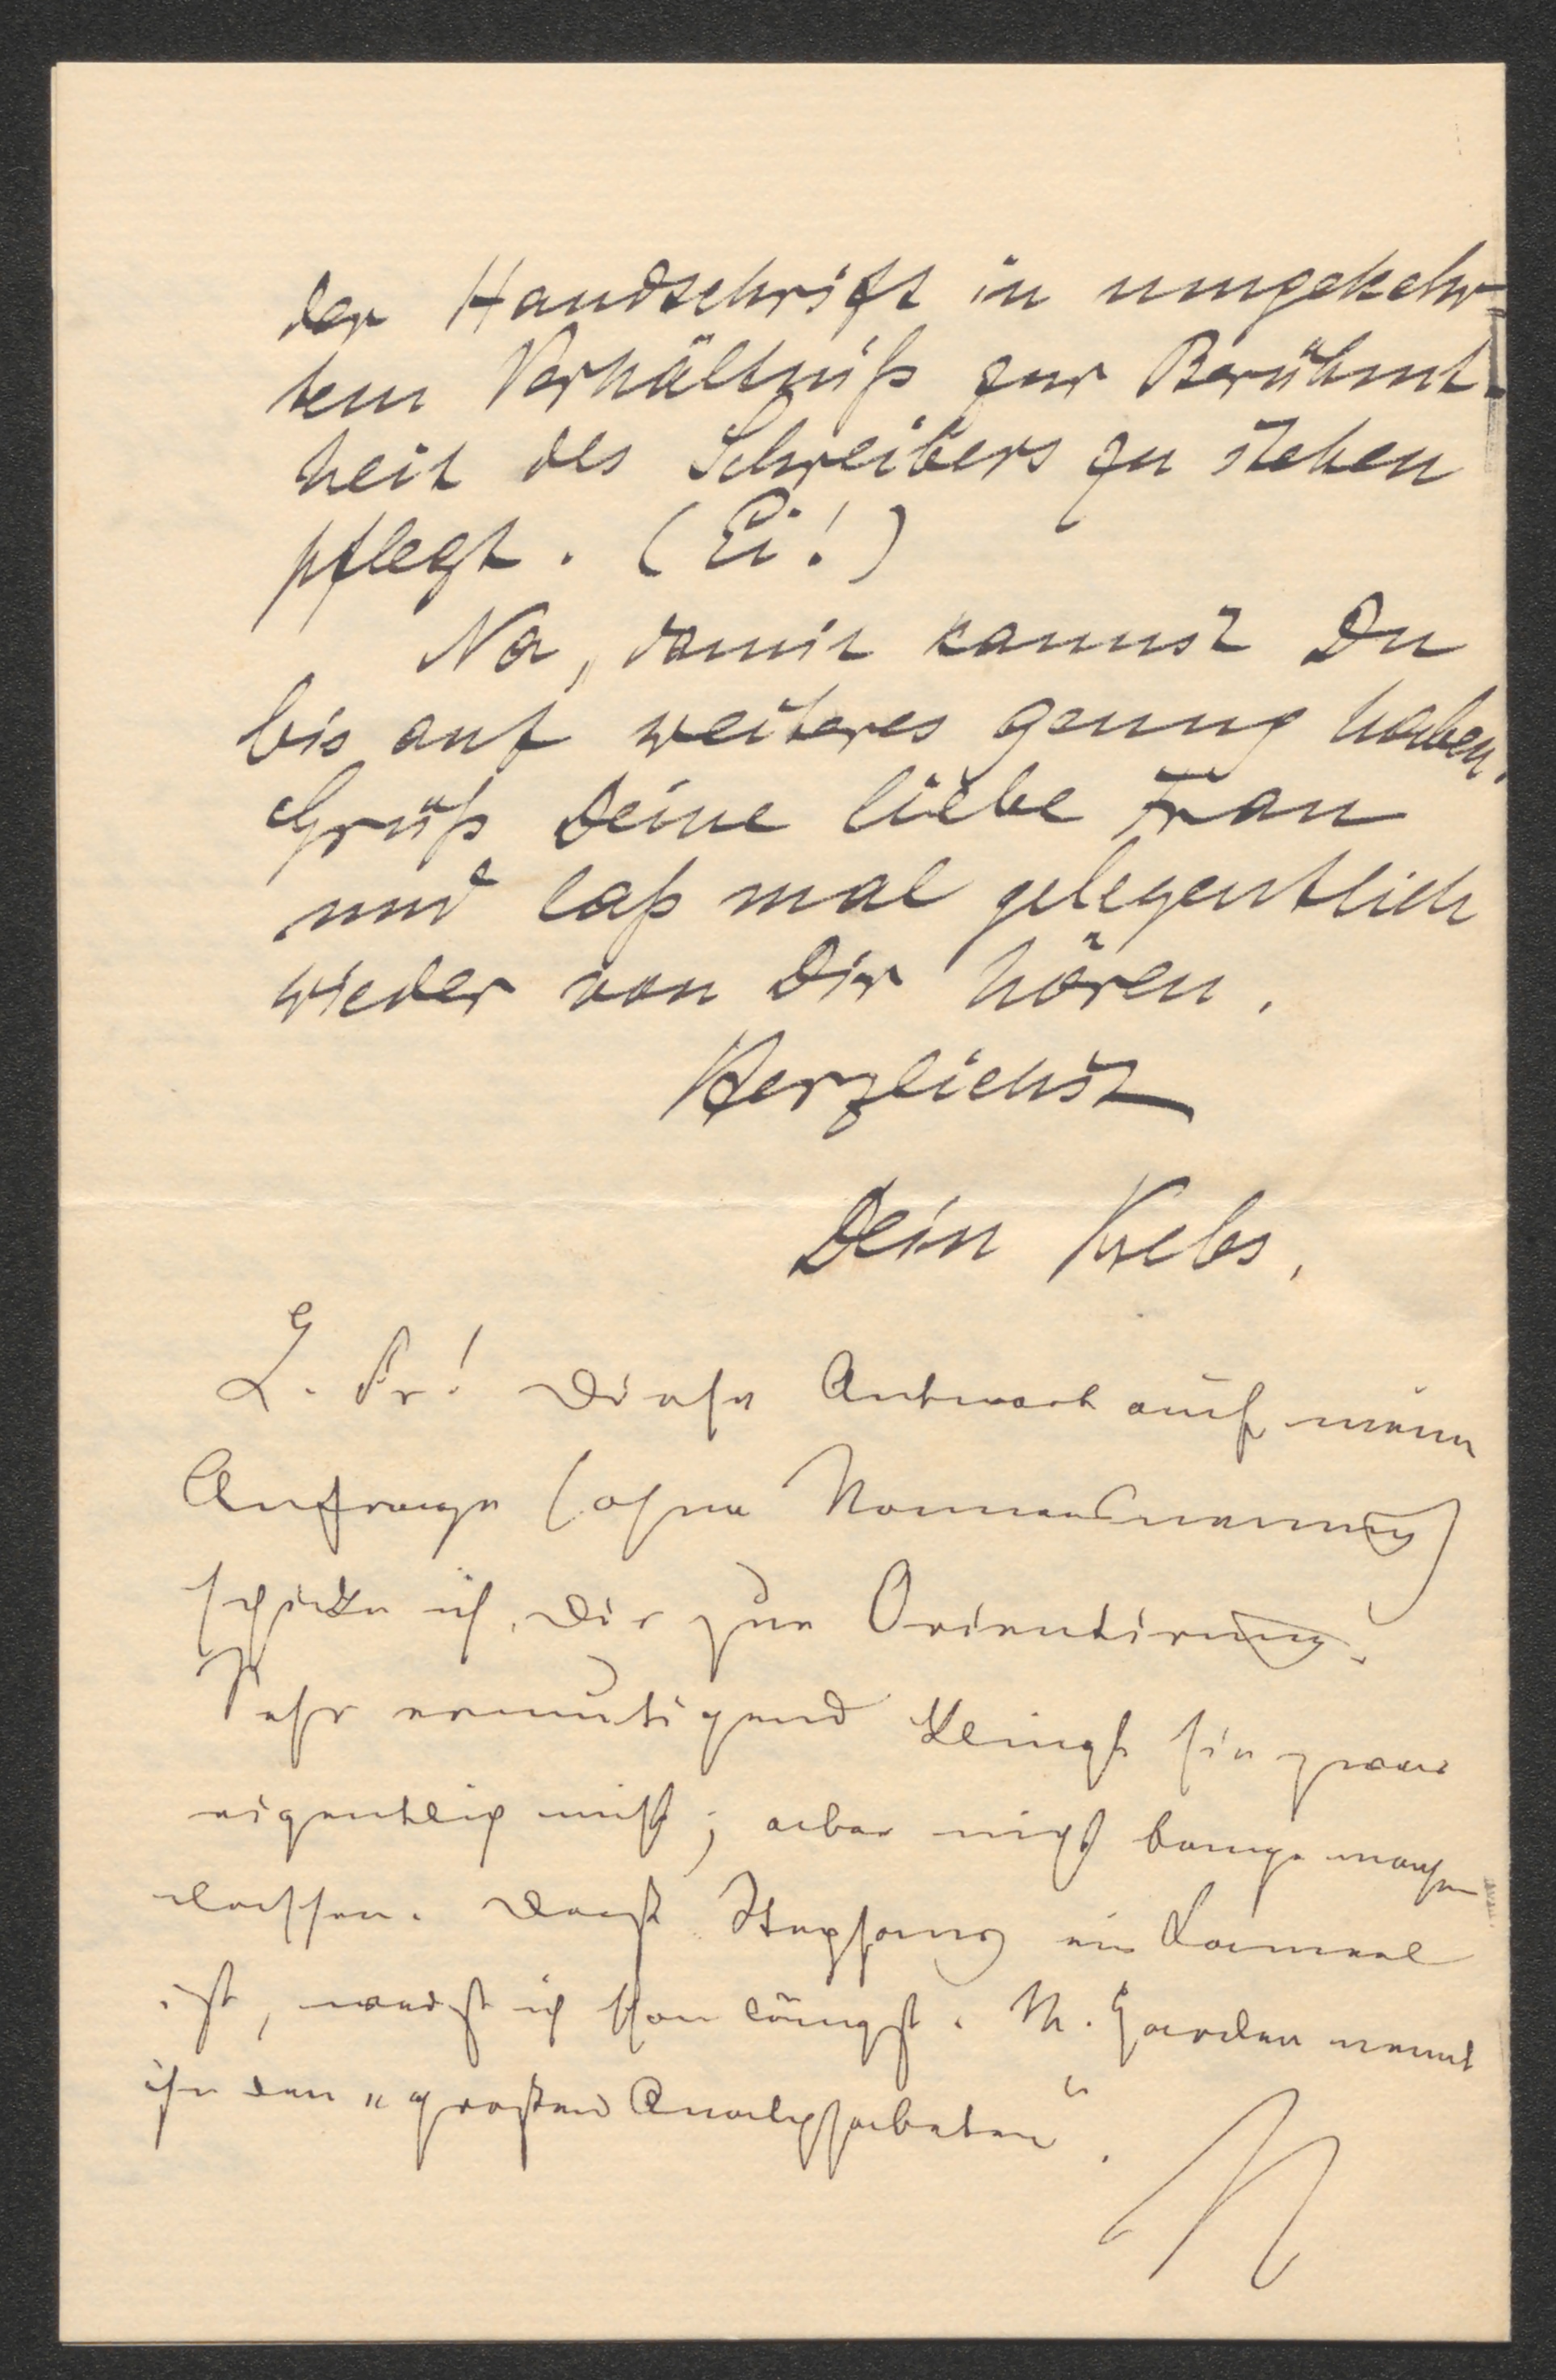 der Handschrift in umgekehr-
tem Verhältniß zur Berühmt-
heit des Schreibers zu stehen
pflegt. (Ei!)
Na, damit kannst Du
bis auf weiteres genug haben.
Grüß Deine liebe Frau
und laß mal gelegentlich
wieder von Dir hören.
Herzlichst
Dein Krebs.
L. Pr! Diese Antwort auf meine
Anfrage (ohne Namensnennung)
schicke ich Dir zur Orientirung.
Sehr ermutigend klingt sie zwar
eigentlich nicht; aber nicht bange machen
lassen. Daß ein Kameel
ist, weiß ich schon längst. M. Harden nennt
ihn den „großen Analphabeten“.
N